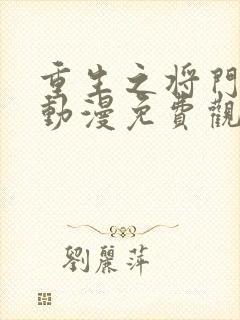 重生之将門
動漫免費觀
劉麗萍